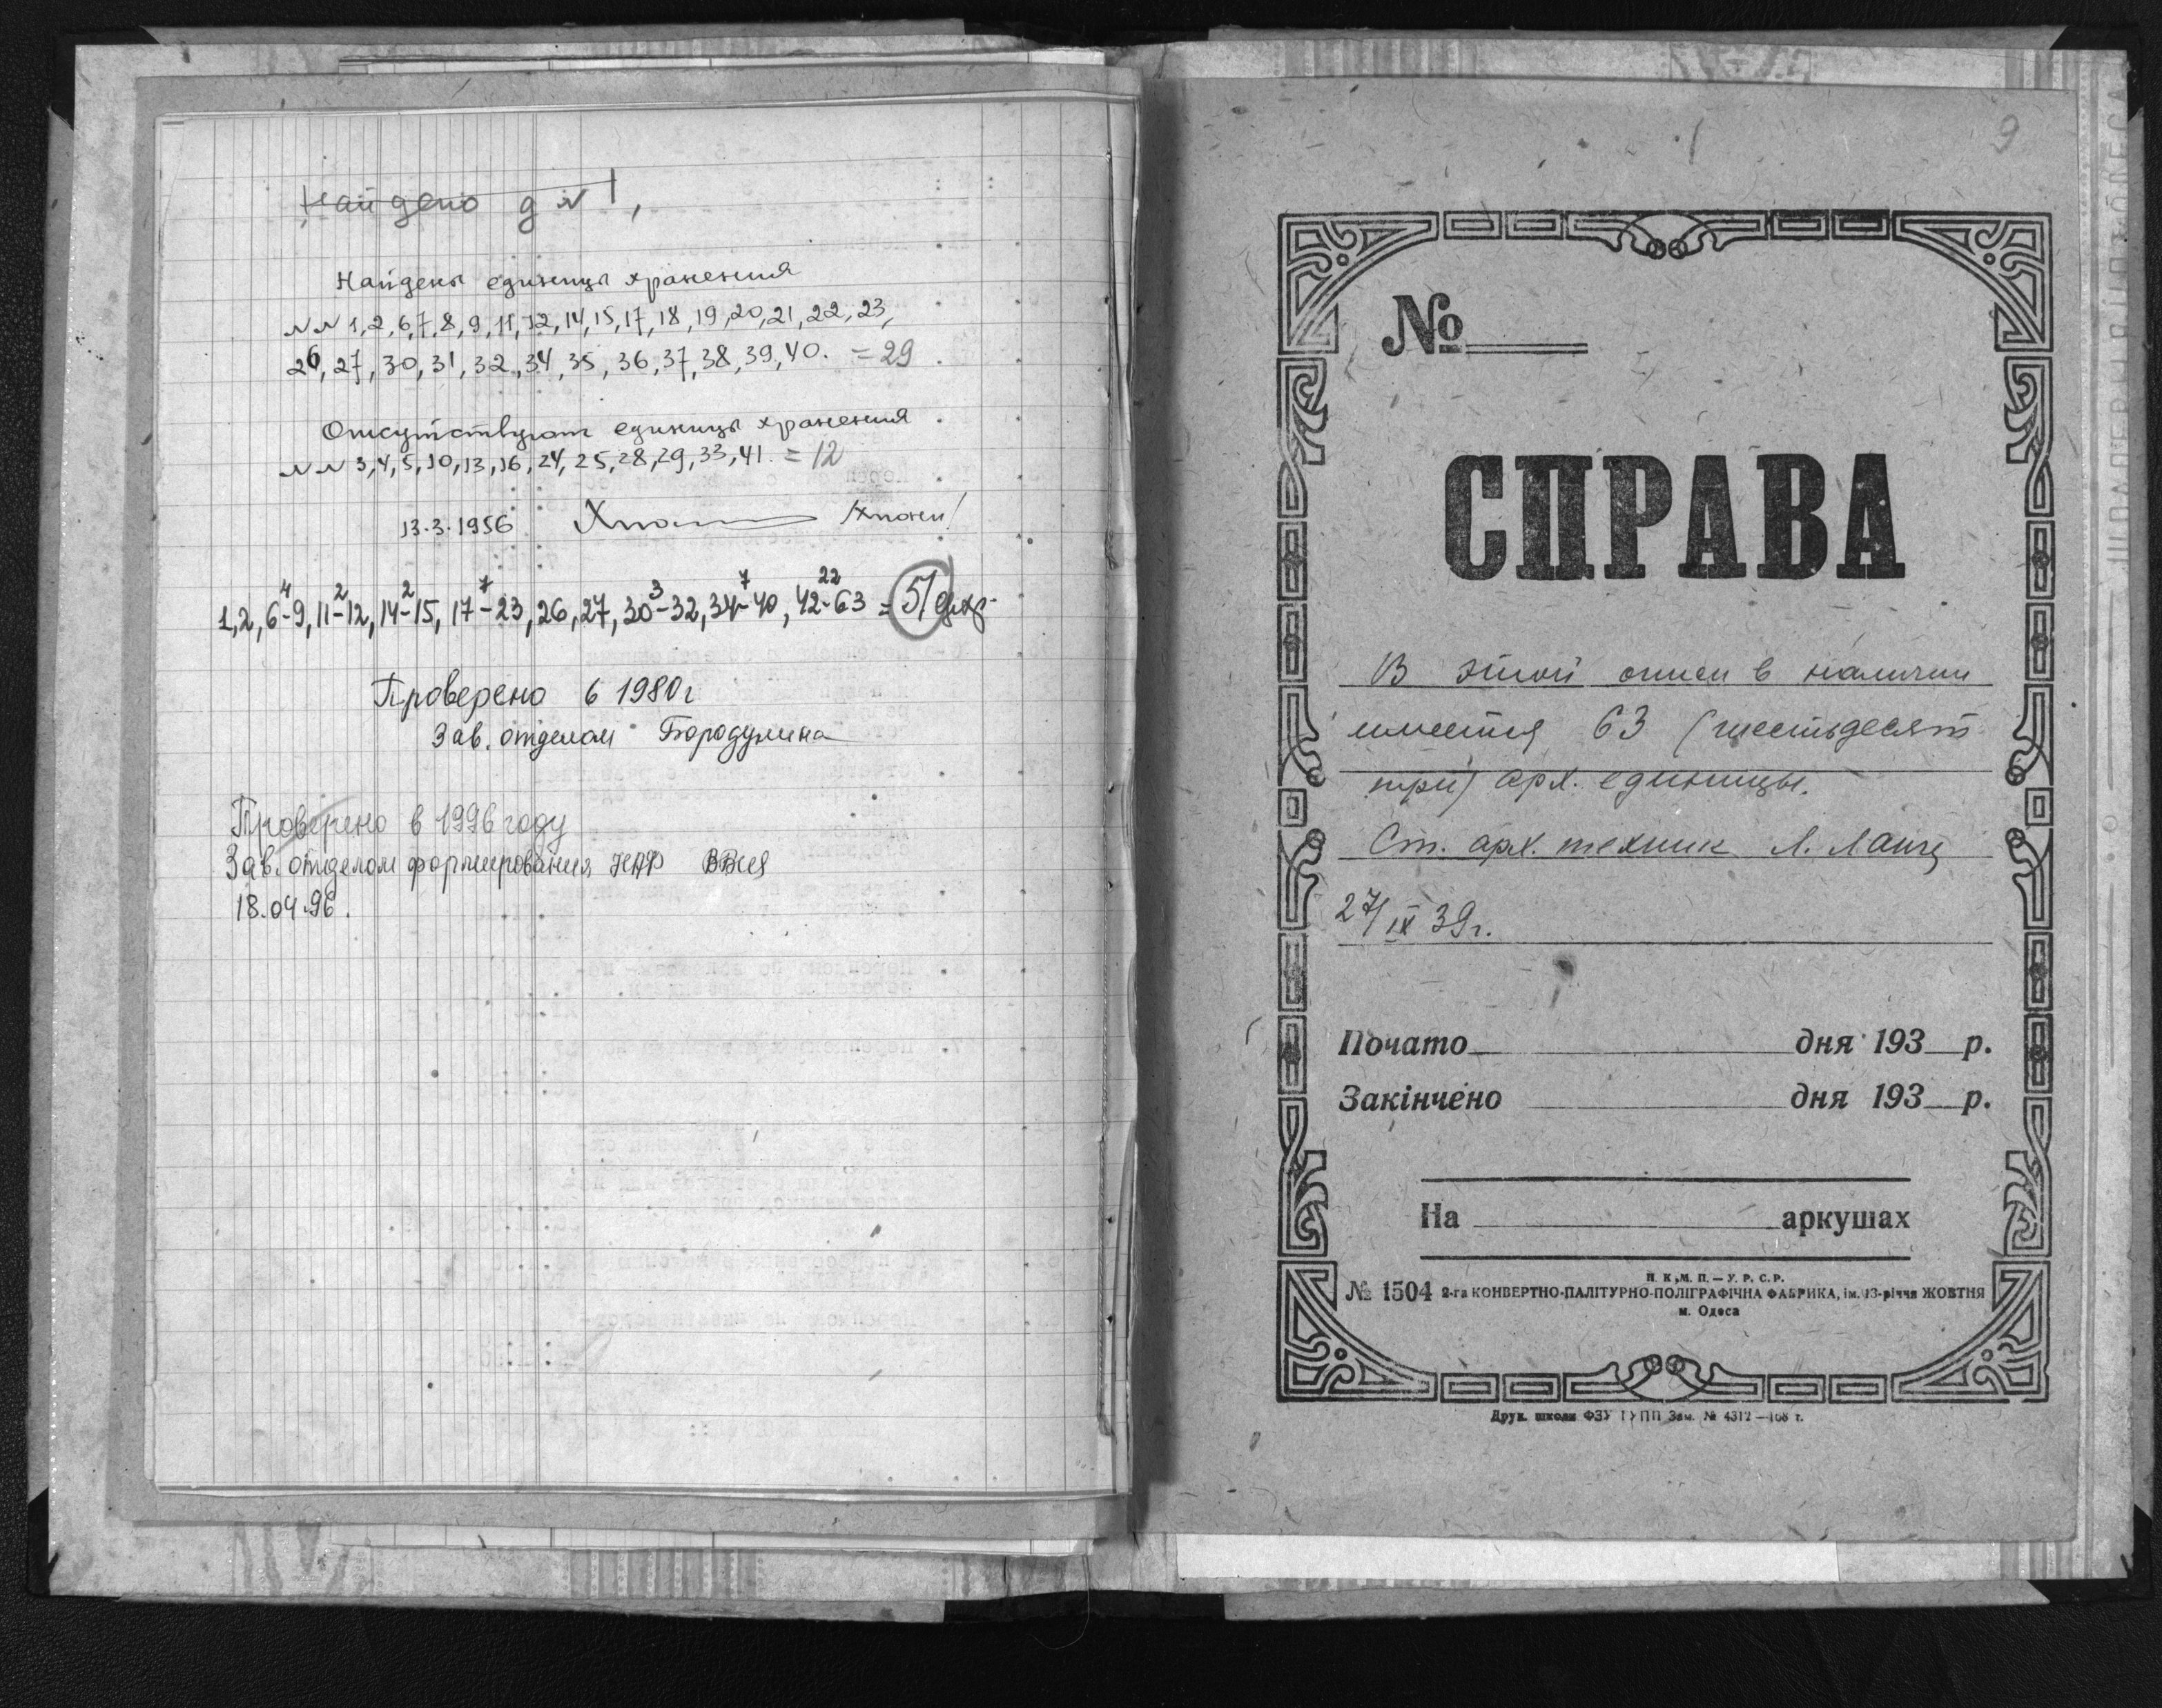 Найдено д №1,
Найдены единицы хранения
№№ 1,2,6,7,8,9,11,12,14,15,17,18,19,20,21,22,23,
26,27,30,31,32,34,35,36,37,38,39,40. = 29
Отсутствуют единицы хранения
№№ 3,4,5,10,13,16,24,25,28,29,33,41. = 12
13.3.1956
4 2 2 7 3 7 22
1,2,6-9,11-12,14-15,17-23,26,27,30-32,34-40,42-63 = 51 ед.хр.
Проверено в 1980г
Зав. отделом Бородулина
Проверено в 1996 году
Зав. отделом формирования НАФ
18.04.96.
9
№
СПРАВА
В этой описи в наличии
имеется 63 (шестьдесят
три) арх. единицы.
Ст. арх. техник Л.
27/IX 39г.
Почато дня 193 р.
Закінчено дня 193 р.
На аркушах
Н. К. М. П. — У. Р. С. Р.
№ 1504 2-га КОНВЕРТНО-ПАЛІТУРНО-ПОЛІГРАФІЧНА ФАБРИКА, ім. 13-річчя ЖОВТНЯ
м. Одеса
Друк. школи ФЗУ Зам. № 4312—168 т.